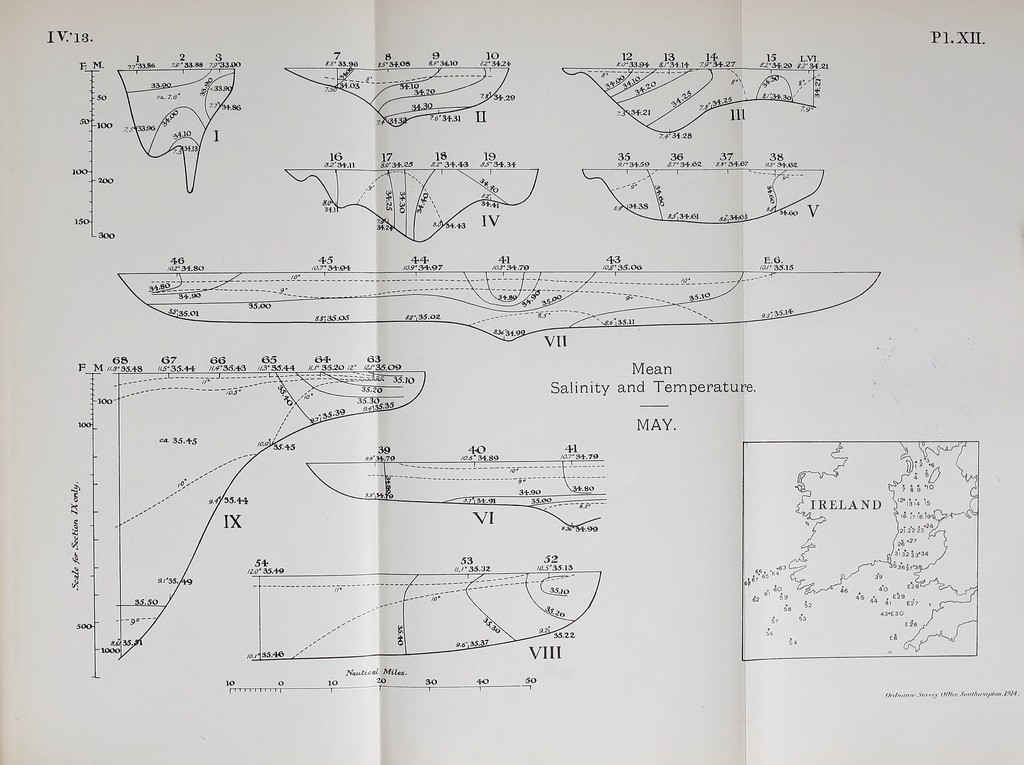 IV. '13.
Pl. XII.
F. M.
50
50 100
100
200
150
300
1 2 3
7.7° 33.86 7.9° 33.88 7.9° 33.00
33.90
ca. 7.6°
33.90
34.00
7.5° 33.96
34.10
34.86
I
7 8 9 10
8.5° 33.96 8.5° 34.08 8.9° 34.10 8.2° 34.24
8°
34.03
34.10
34.20
34.30
34.29
7.6° 34.31
II
12 13 14 15 L.VI.
8.0° 33.94 8.1° 34.14 7.9° 34.27 8.2° 34.29 8.2° 34.21
34.00
34.10
34.20
34.25
34.30
34.21
7.3° 34.21
7.8° 34.25
8.1° 34.30
7.9°
7.4° 34.28
III
16 17 18 19
8.2° 34.11 8.0° 34.25 8.2° 34.43 8.5° 34.34
34.25
34.30
34.40
34.40
34.41
34.11
34.24
34.43
IV
35 36 37 38
9.1° 34.59 8.7° 34.62 8.8° 34.67 9.3° 34.62
9° 9°
34.60
34.60
8.9° 34.38
8.5° 34.61
8.6° 34.65
34.60
V
46 45 44 41 43 E.6.
10.2° 34.80 10.7° 34.94 10.9° 34.97 10.3° 34.79 10.8° 35.06 10.1° 35.15
10° 10°
9° 9°
34.80
34.90
35.00
34.80
34.90
35.00
35.10
35.01
8.8° 35.05
8.8° 35.02
8.5°
8.36° 34.99
8.6° 35.11
9.5° 35.14
VII
F. M.
100
100
500
1000
Scale for Section IX only.
68 67 66 65 64 63
11.8° 35.48 11.5° 35.44 11.4° 35.43 11.3° 35.44 11.1° 35.20 12° 12.1° 35.09
11°
10.5°
10°
35.10
35.20
35.30
35.40
9.4° 35.35
9.7° 35.39
10.0° 35.45
ca. 35.45
10°
9.4° 35.44
9.1° 35.49
35.50
9°
8.6° 35.51
IX
Mean
Salinity and Temperature.
MAY.
39 40 41
9.9° 34.79 10.5° 34.89 10.7° 34.79
10°
9°
34.80
34.80
34.90
35.00
34.79
8.7° 34.91
8.5°
8.36° 34.99
VI
54 53 52
12.0° 35.49 11.1° 35.32 10.5° 35.13
11°
10°
35.10
35.20
35.30
35.40
9.7°
35.22
9.6° 35.37
10.1° 35.46
VIII
Nautical Miles.
10 0 10 20 30 40 50
IRELAND
Ordnance Survey Office, Southampton, 1914.